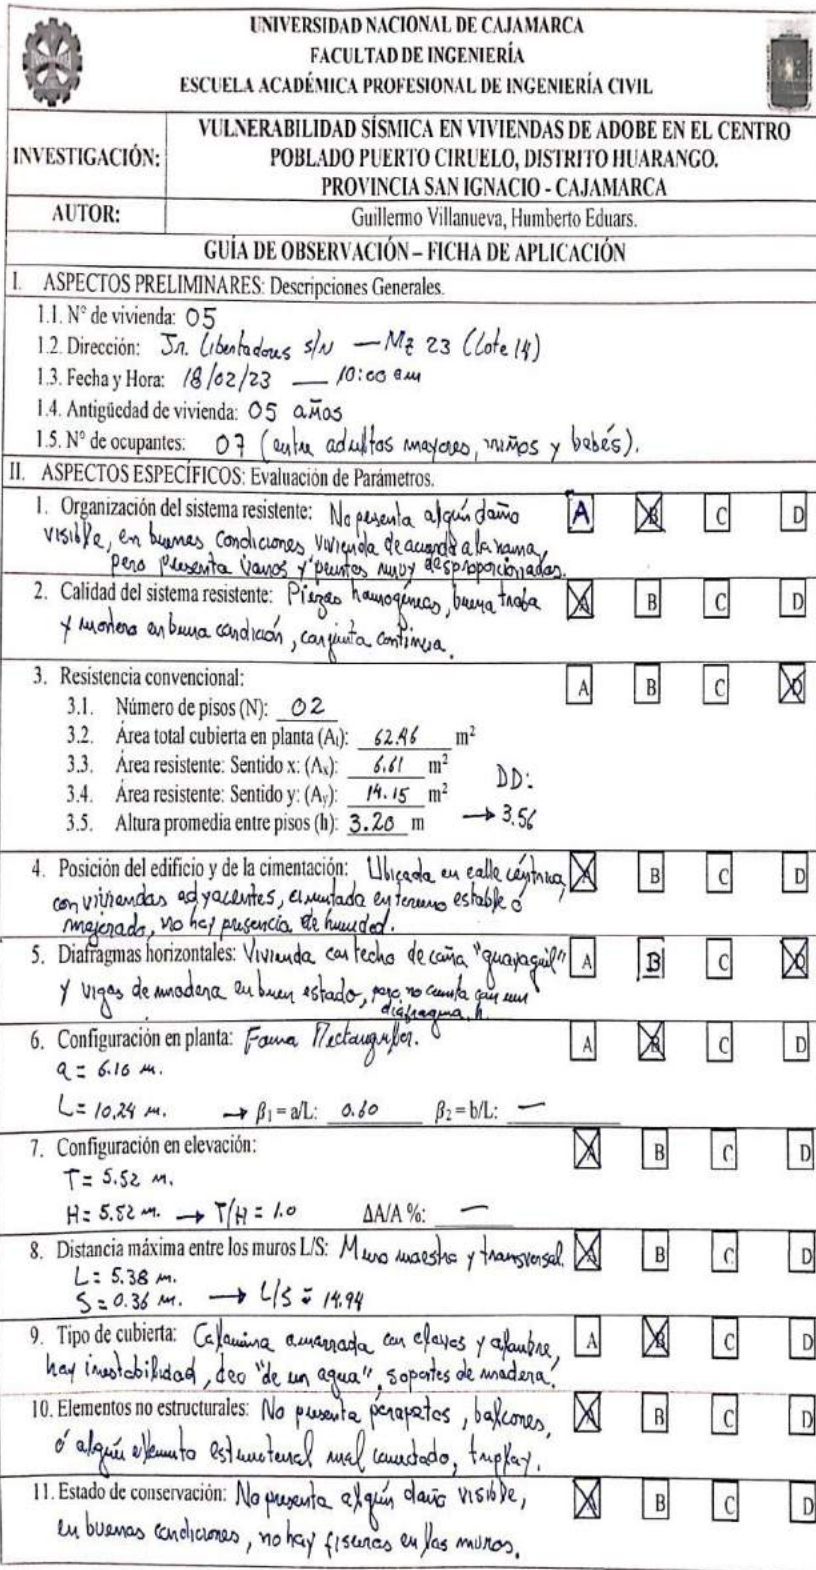 UNIVERSIDAD NACIONAL DE CAJAMARCA
FACULTAD DE INGENIERÍA
ESCUELA ACADÉMICA PROFESIONAL DE INGENIERÍA CIVIL
INVESTIGACIÓN:
VULNERABILIDAD SÍSMICA EN VIVIENDAS DE ADOBE EN EL CENTRO
POBLADO PUERTO CIRUELO, DISTRITO HUARANGO.
PROVINCIA SAN IGNACIO - CAJAMARCA
AUTOR: Guillermo Villanueva, Humberto Eduars.
GUÍA DE OBSERVACIÓN – FICHA DE APLICACIÓN
I. ASPECTOS PRELIMINARES: Descripciones Generales.
1.1. N° de vivienda: 05
1.2. Dirección: Jr. Libertadores s/N — Mz 23 (Lote 14)
1.3. Fecha y Hora: 18/02/23 — 10:00 am
1.4. Antigüedad de vivienda: 05 años
1.5. N° de ocupantes: 07 (entre adultos mayores, niños y bebés).
II. ASPECTOS ESPECÍFICOS: Evaluación de Parámetros.
1. Organización del sistema resistente: No presenta algún daño A B C D
visible, en buenas condiciones vivienda de acuerdo a la norma,
pero presenta vanos y puertas muy desproporcionadas.
2. Calidad del sistema resistente: Piezas homogéneas, buena traba A B C D
y mortero en buena condición, con junta continua.
3. Resistencia convencional: A B C D
3.1. Número de pisos (N): 02
3.2. Área total cubierta en planta (At): 62.96 m²
3.3. Área resistente: Sentido x: (Ax): 6.61 m² DD:
3.4. Área resistente: Sentido y: (Ay): 14.15 m²
3.5. Altura promedia entre pisos (h): 3.20 m → 3.56
4. Posición del edificio y de la cimentación: Ubicada en calle céntrica, A B C D
con viviendas adyacentes, cimentada en terreno estable ó
mejorado, no hay presencia de humedad.
5. Diafragmas horizontales: Vivienda con techo de caña "guayaquil" A B C D
y vigas de madera en buen estado, pero no cuenta con un
diafragma h.
6. Configuración en planta: Forma Rectangular. A B C D
a = 6.16 m.
L = 10.24 m. → β1 = a/L: 0.60 β2 = b/L: —
7. Configuración en elevación: A B C D
T = 5.52 m.
H = 5.52 m. → T/H = 1.0 ΔA/A %: —
8. Distancia máxima entre los muros L/S: Muro maestro y transversal. A B C D
L = 5.38 m.
S = 0.36 m. → L/S = 14.94
9. Tipo de cubierta: Calamina amarrada con clavos y alambre, A B C D
hay inestabilidad, deo "de un agua", soportes de madera.
10. Elementos no estructurales: No presenta parapetos, balcones, A B C D
ó algún elemento estructural mal conectado, triplay.
11. Estado de conservación: No presenta algún daño visible, A B C D
en buenas condiciones, no hay fisuras en los muros.